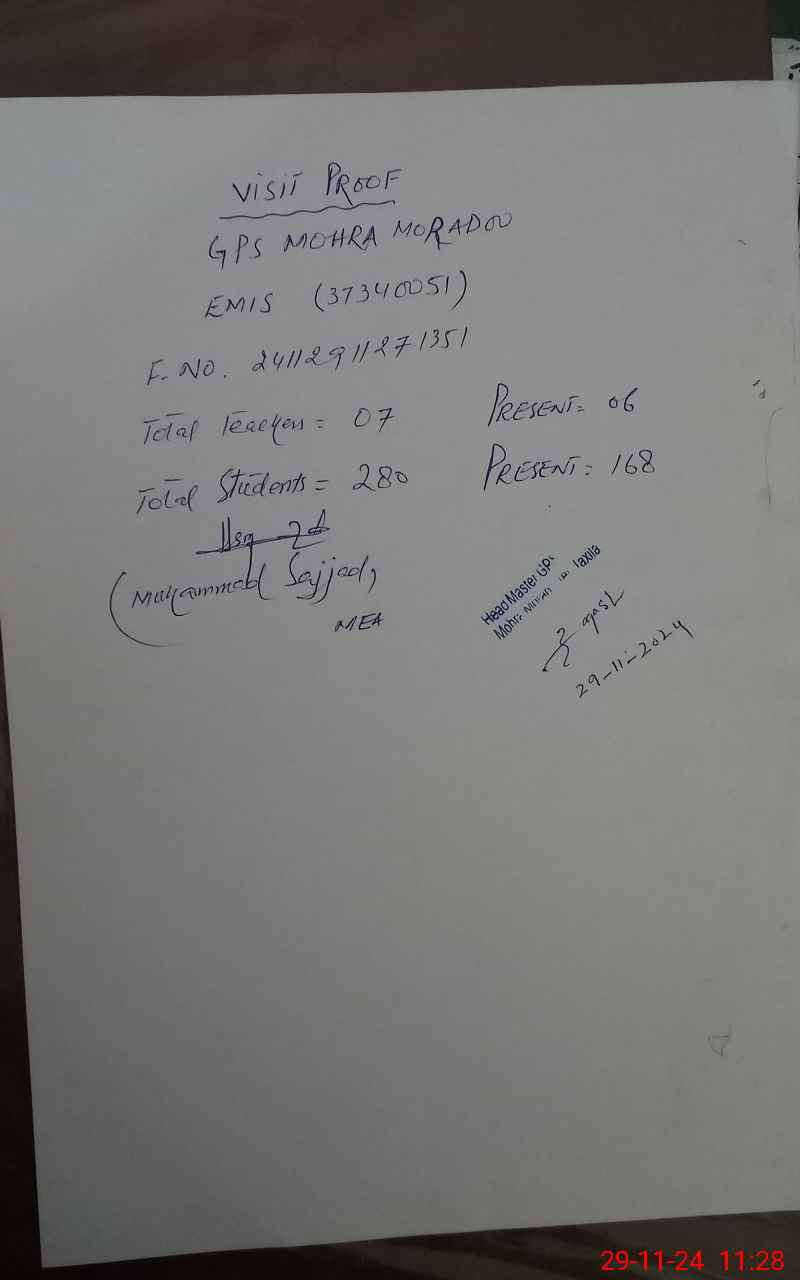 VISIT PROOF
GPS MOHRA MORADOO
EMIS (37340051)
F. NO. 24112911271351
Total Teachers = 07 PRESENT = 06
Total Students = 280 PRESENT = 168
(Muhammad Sajjad,
MEA
Head Master GPS
Mohra Taxila
29-11-2024
29-11-24 11:28